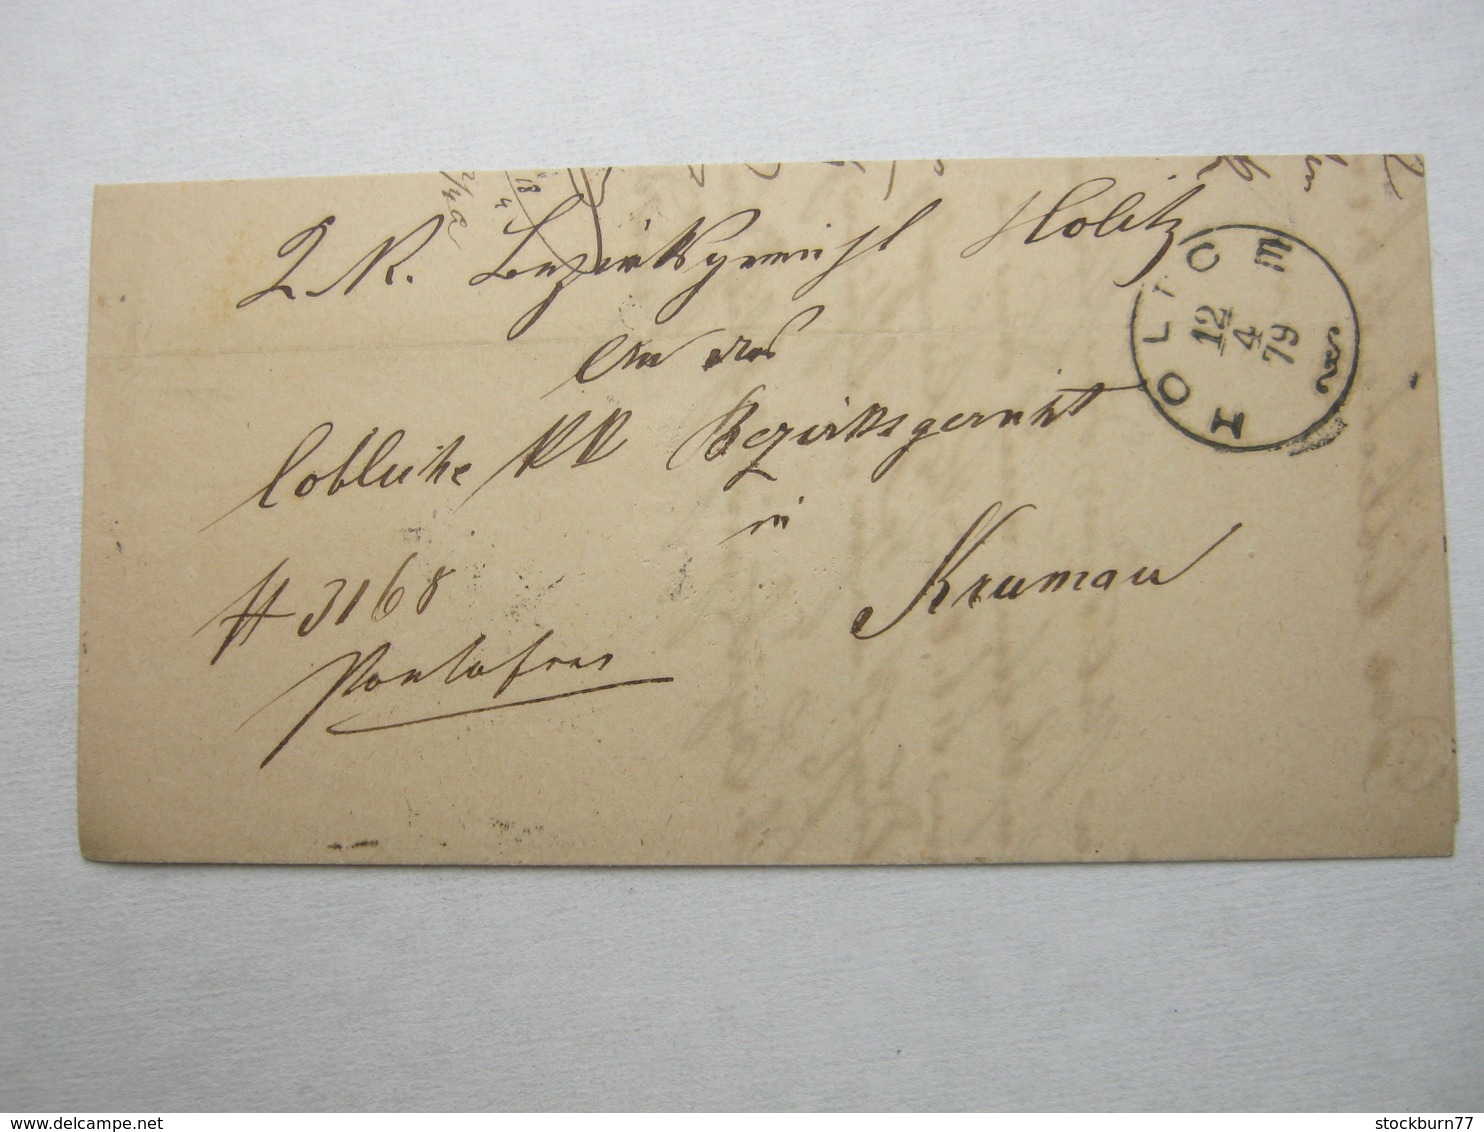 K. K. Bezirksgericht Holitz
An das
löbliche KK Bezirksgericht
in
Krumau
# 3168
Portofrei
HOLIC
12
4
79
E
18
4
stockburn77